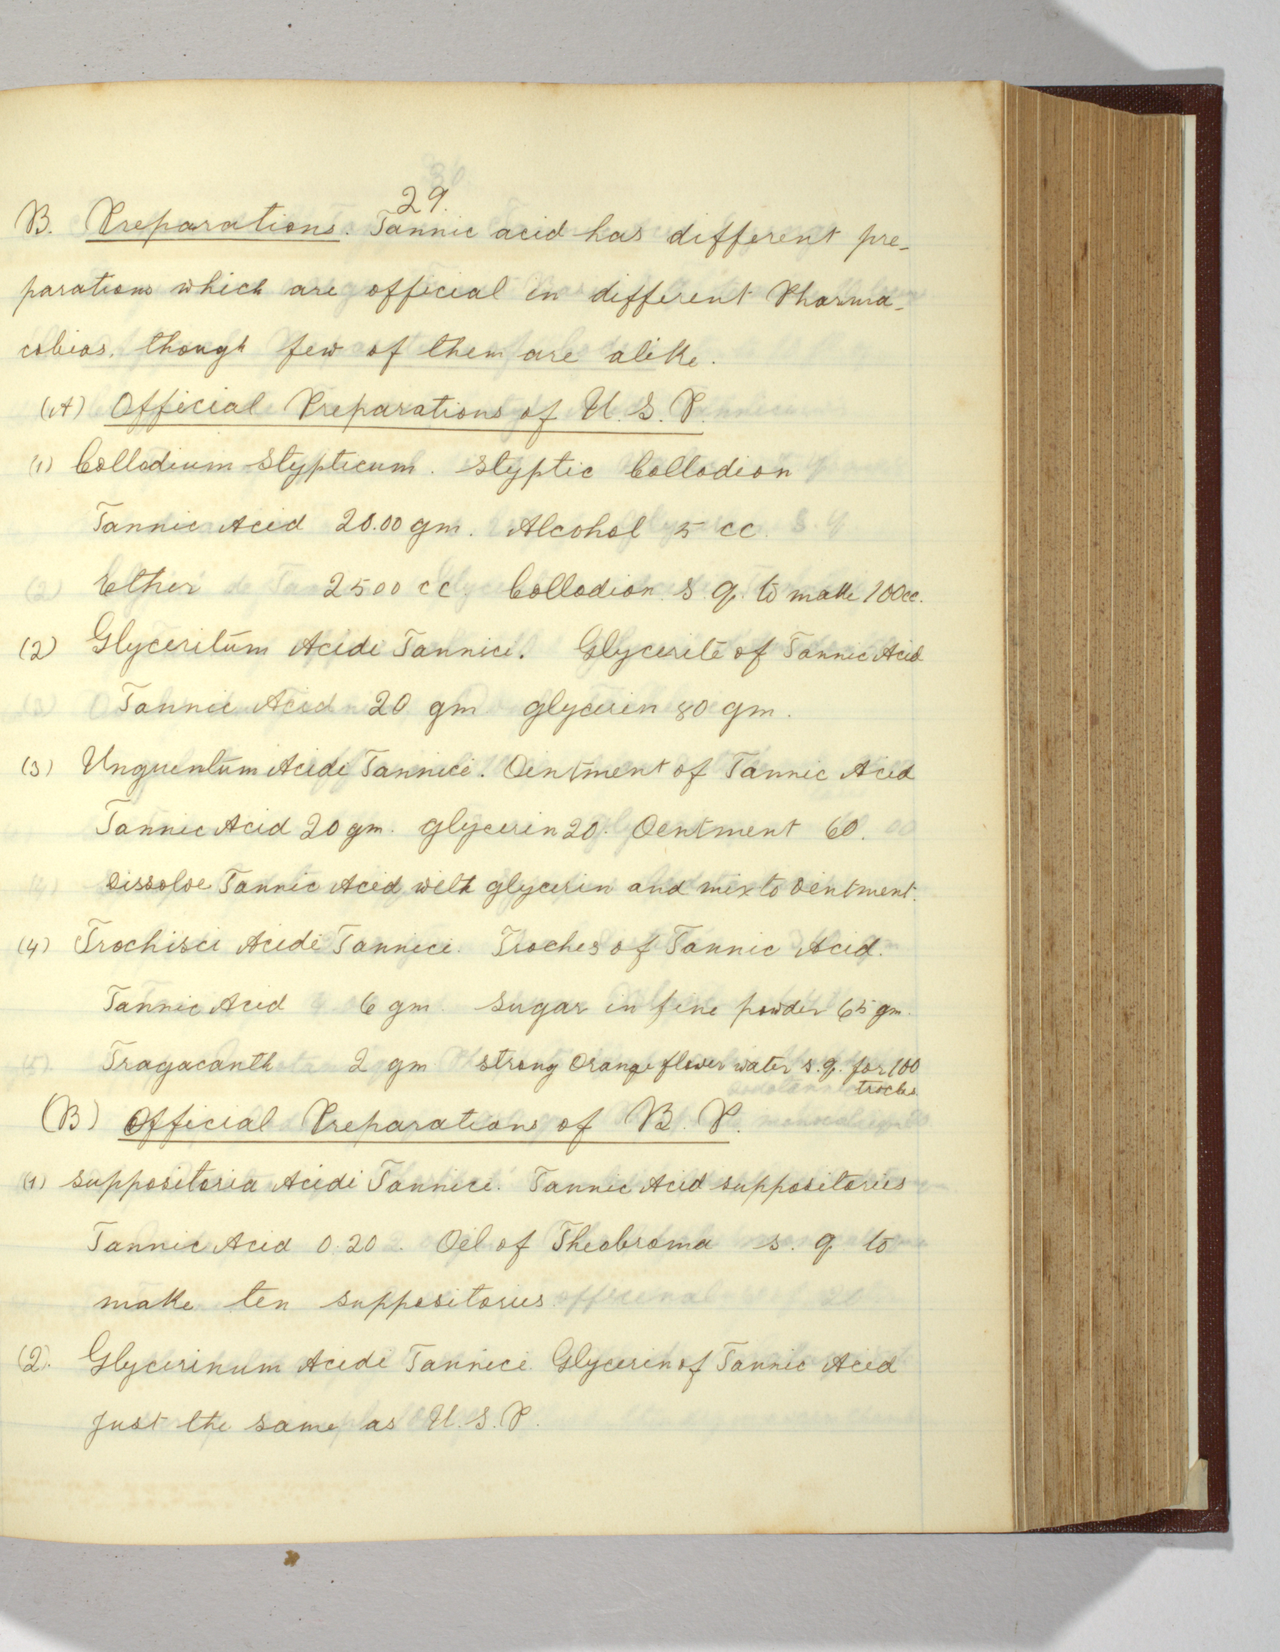 29.
B. Preparations. Tannic acid has different pre-
parations which are official in different Pharma-
cobias. though few of them are alike.
(A) Official Preparations of U. S. P.
(1) Collodium Stypticum. Styptic Collodion
Tannic Acid 20.00 gm. Alcohol 5 cc.
Ether 25 00 cc Collodion s. q. to make 100 cc.
(2) Glyceritum Acidi Tannici. Glycerite of Tannic Acid
Tannic Acid 20 gm glycerin 80 gm.
(3) Unguentum Acidi Tannici. Ointment of Tannic Acid
Tannic Acid 20 gm. glycerin 20. Ointment 60.
Dissolve Tannic Acid with glycerin and mix to ointment.
(4) Trochisci Acidi Tannici. Troches of Tannic Acid.
Tannic Acid 6 gm. Sugar in fine powder 65 gm.
Tragacanth 2 gm strong orange flower water s. q. for 100
troches
(B) Official Preparations of B. P.
(1) Suppositoria Acidi Tannici. Tannic Acid suppositories
Tannic Acid 0.20. Oil of Theobroma s. q to
make ten suppositories
(2). Glycerinum Acidi Tannici Glycerin of Tannic Acid
Just the same as U. S. P.